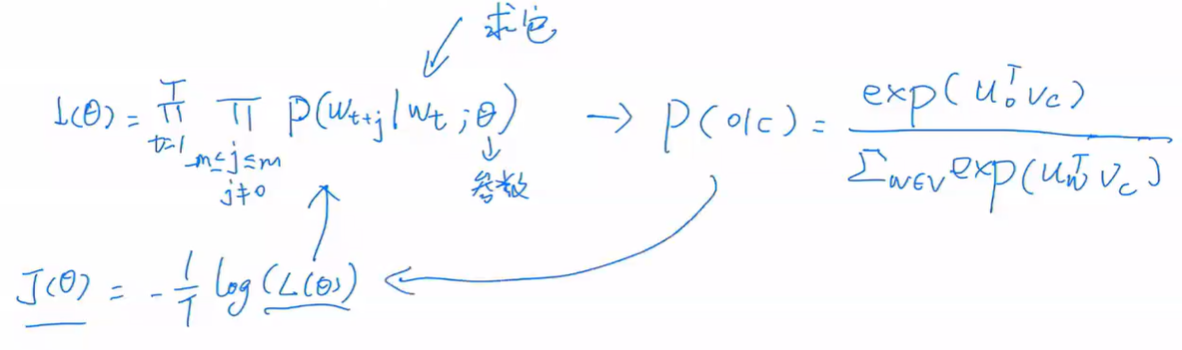 求它
L(θ) = ∏_{t=1}^{T} ∏_{-m≤j≤m, j≠0} P(w_{t+j} | w_t ; θ) → P(o|c) = exp(u_o^T v_c) / Σ_{w∈V} exp(u_w^T v_c)
参数
J(θ) = -1/T log(L(θ))